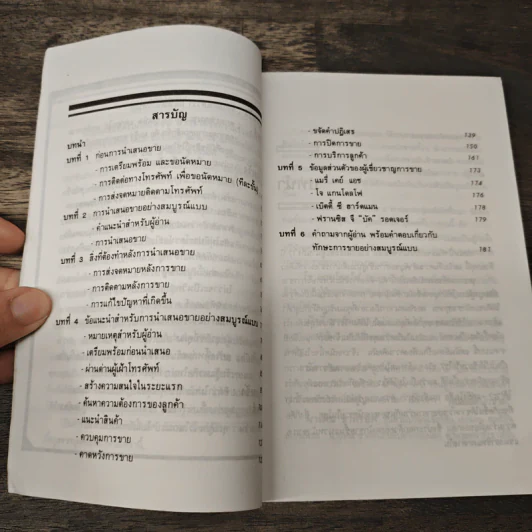 สารบัญ
บทนำ
บทที่ 1 ก่อนการนำเสนอขาย
- การเตรียมพร้อม และขอนัดหมาย
- การติดต่อทางโทรศัพท์ เพื่อขอนัดหมาย (ทีละขั้น)
- การส่งจดหมายติดตามโทรศัพท์
บทที่ 2 การนำเสนอขายอย่างสมบูรณ์แบบ
- คำแนะนำสำหรับผู้อ่าน
- การนำเสนอขาย
บทที่ 3 สิ่งที่ต้องทำหลังการนำเสนอขาย
- การส่งจดหมายหลังการขาย
- การติดตามหลังการขาย
- การแก้ไขปัญหาที่เกิดขึ้น
บทที่ 4 ข้อแนะนำสำหรับการนำเสนอขายอย่างสมบูรณ์แบบ
- หมายเหตุสำหรับผู้อ่าน
- เตรียมพร้อมก่อนนำเสนอ
- ผ่านด่านผู้เฝ้าโทรศัพท์
- สร้างความสนใจในระยะแรก
- ค้นหาความต้องการของลูกค้า
- แนะนำสินค้า
- ควบคุมการขาย
- คาดหวังการขาย
- ขจัดคำปฏิเสธ 139
- การปิดการขาย 150
- การบริการลูกค้า 161
บทที่ 5 ข้อมูลส่วนตัวของผู้เชี่ยวชาญการขาย 173
- แมรี่ เคย์ แอช 174
- โจ แกนโดลโฟ 176
- เบ็ตตี้ ซี ฮาร์ดแมน 178
- ฟรานซิส จี "บัค" รอดเจอร์ 179
บทที่ 6 คำถามจากผู้อ่าน พร้อมคำตอบเกี่ยวกับ
ทักษะการขายอย่างสมบูรณ์แบบ 181